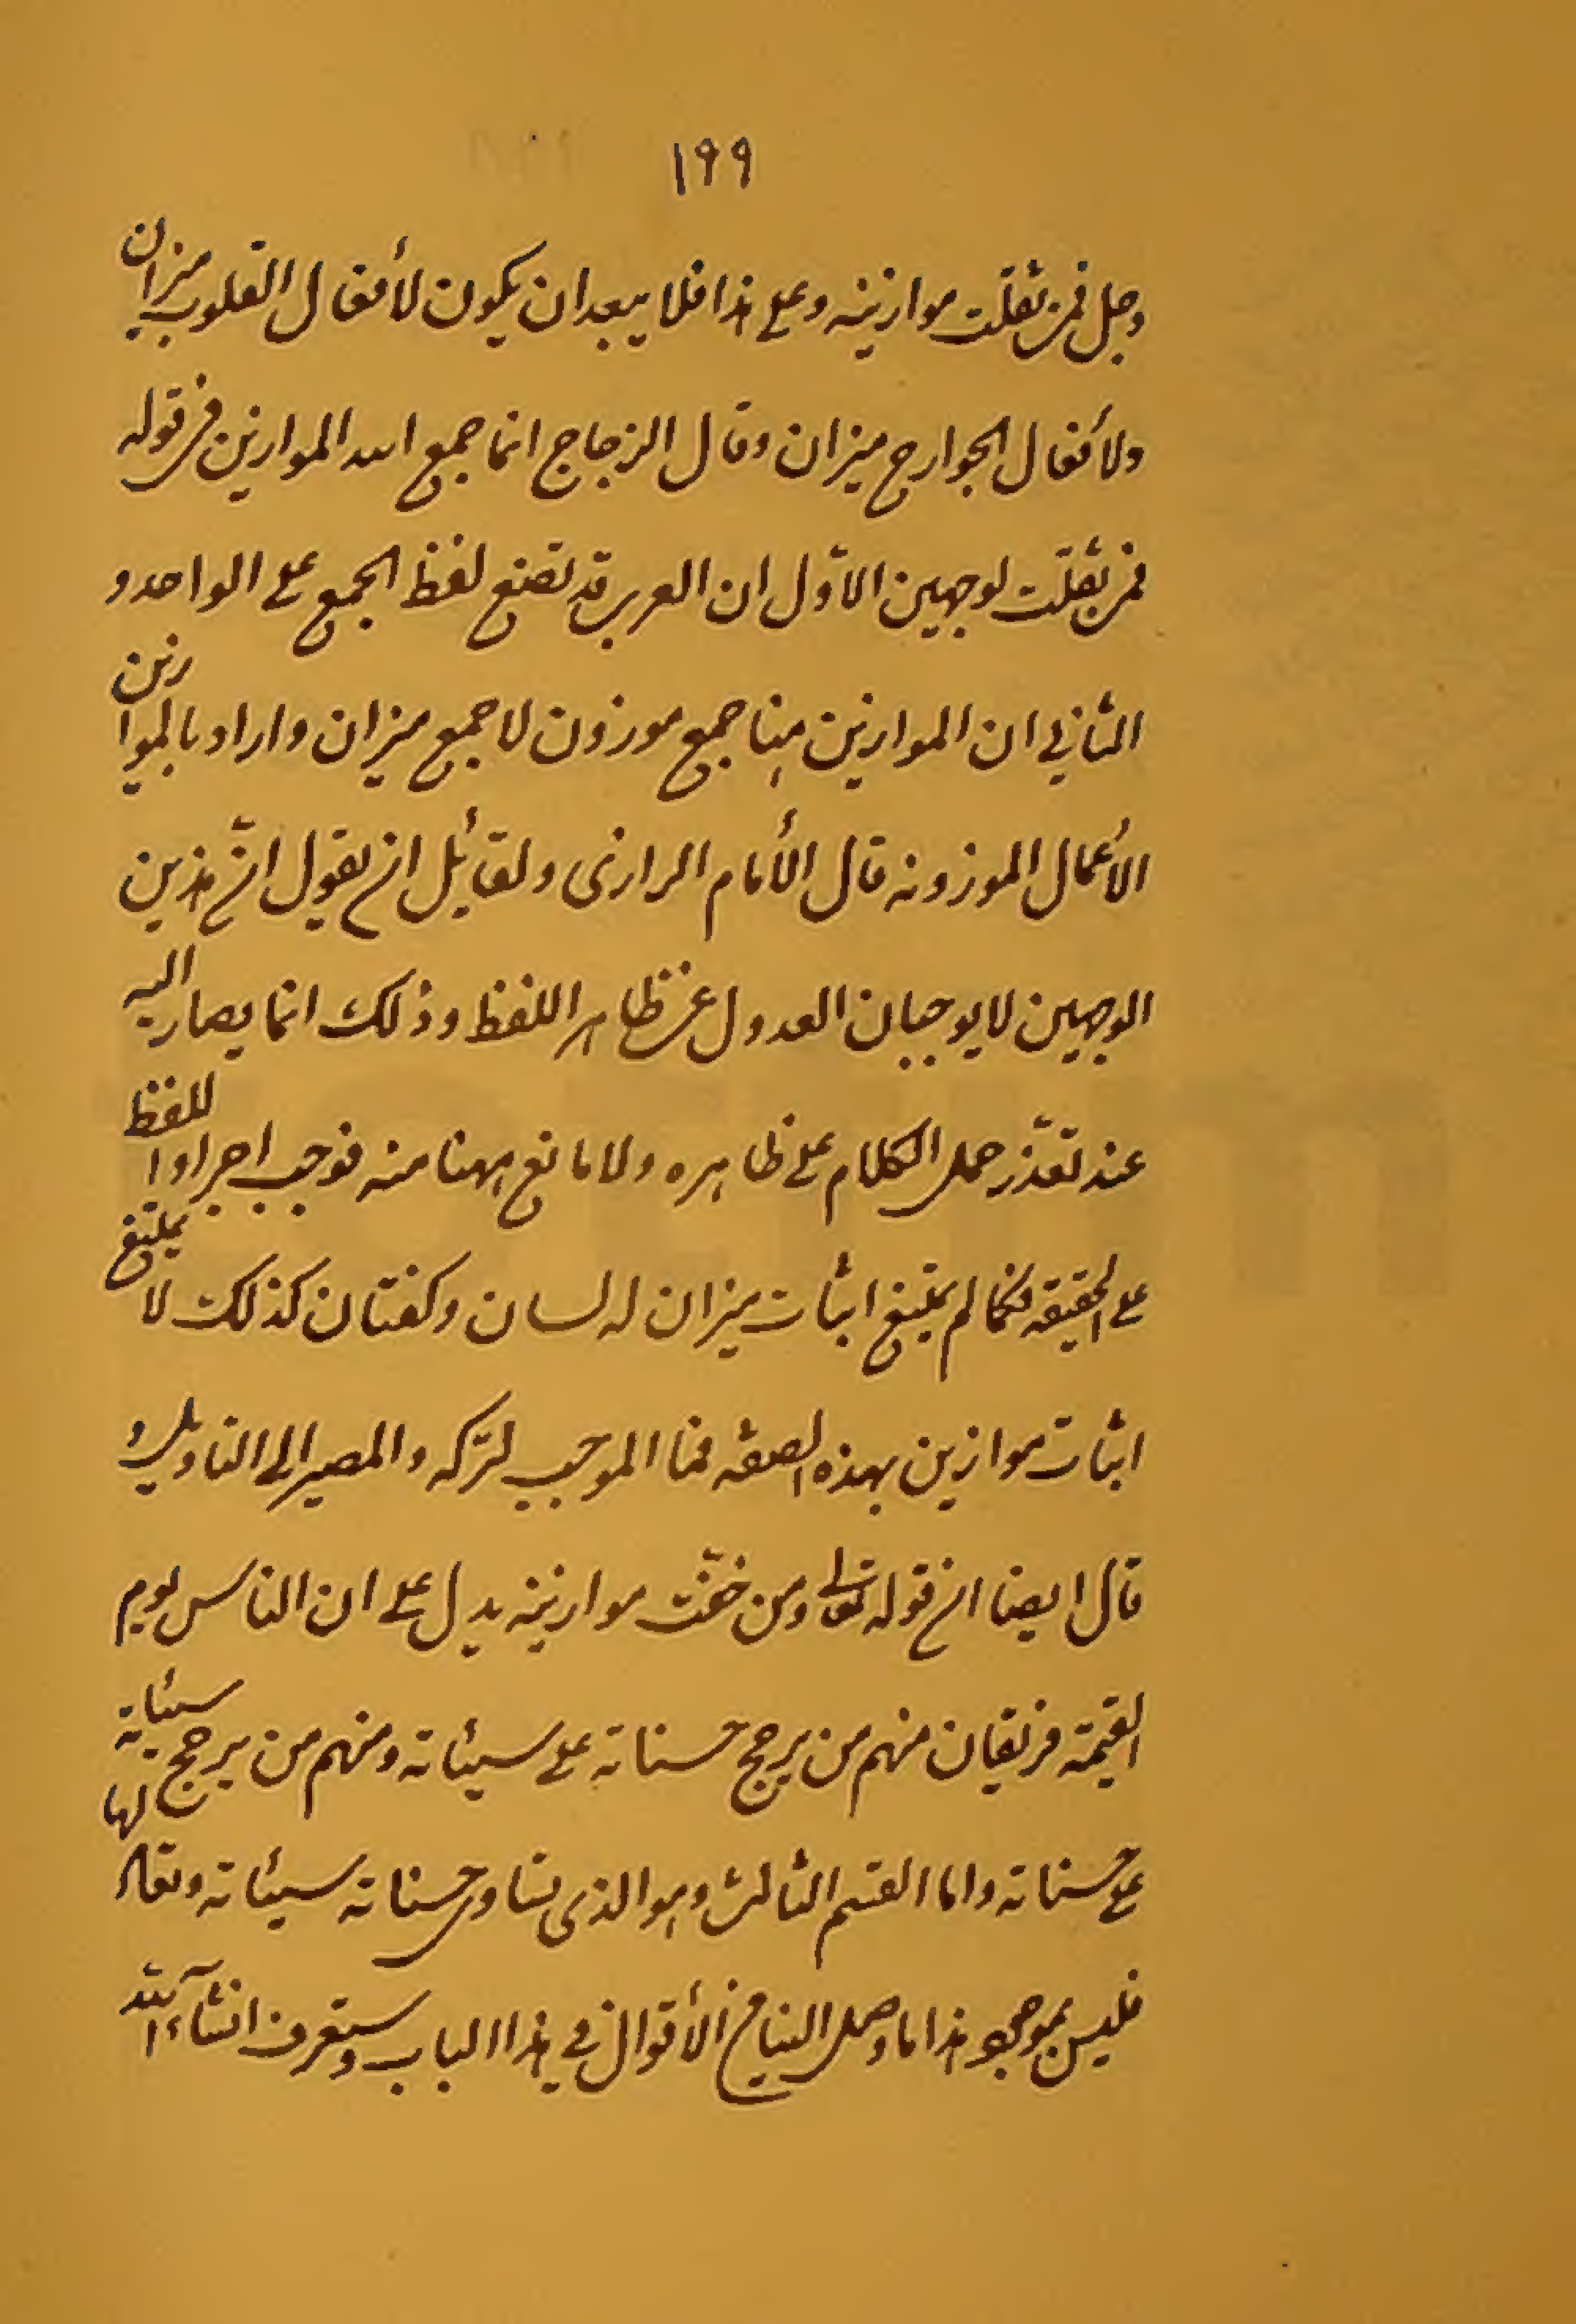 ١٩٩
وجل فمن ثقلت موازينه وعلى هذا فلا يبعد ان يكون لأفعال القلوب ميزان
ولأفعال الجوارح ميزان وقال الزجاج انما جمع الله الموازين فى قوله
فمن ثقلت لوجهين الاوّل ان العرب قد تضع لفظ الجمع على الواحد و
الثاني ان الموازين هنا جمع موزون لا جمع ميزان واراد بالموازين
الأعمال الموزونه قال الأمام الرازى ولقائل ان يقول انّ هذين
الوجهين لا يوجبان العدول عن ظاهر اللفظ وذلك انما يصار اليه
عند تعذّر حمل الكلام على ظاهره ولا مانع ههنا منه فوجب اجراء اللفظ
على الحقيقه فكما لم يمتنع اثبات ميزان له لسان وكفتان كذلك لا يمتنع
اثبات موازين بهذه الصفه فما الموجب لتركه والمصير الى التاويل و
قال ايضا ان قوله تعالى ومن خفّت موازينه يدل على ان الناس يوم
القيمة فريقان منهم من يرجح حسناته على سيئاته ومنهم من يرجح سيئاته
على حسناته واما القسم الثالث وهو الذى تساوى حسناته سيئاته وتعادلها
فليس بموجود هذا ما وصل الينا من الأقوال في هذا الباب وستعرف انشاء الله